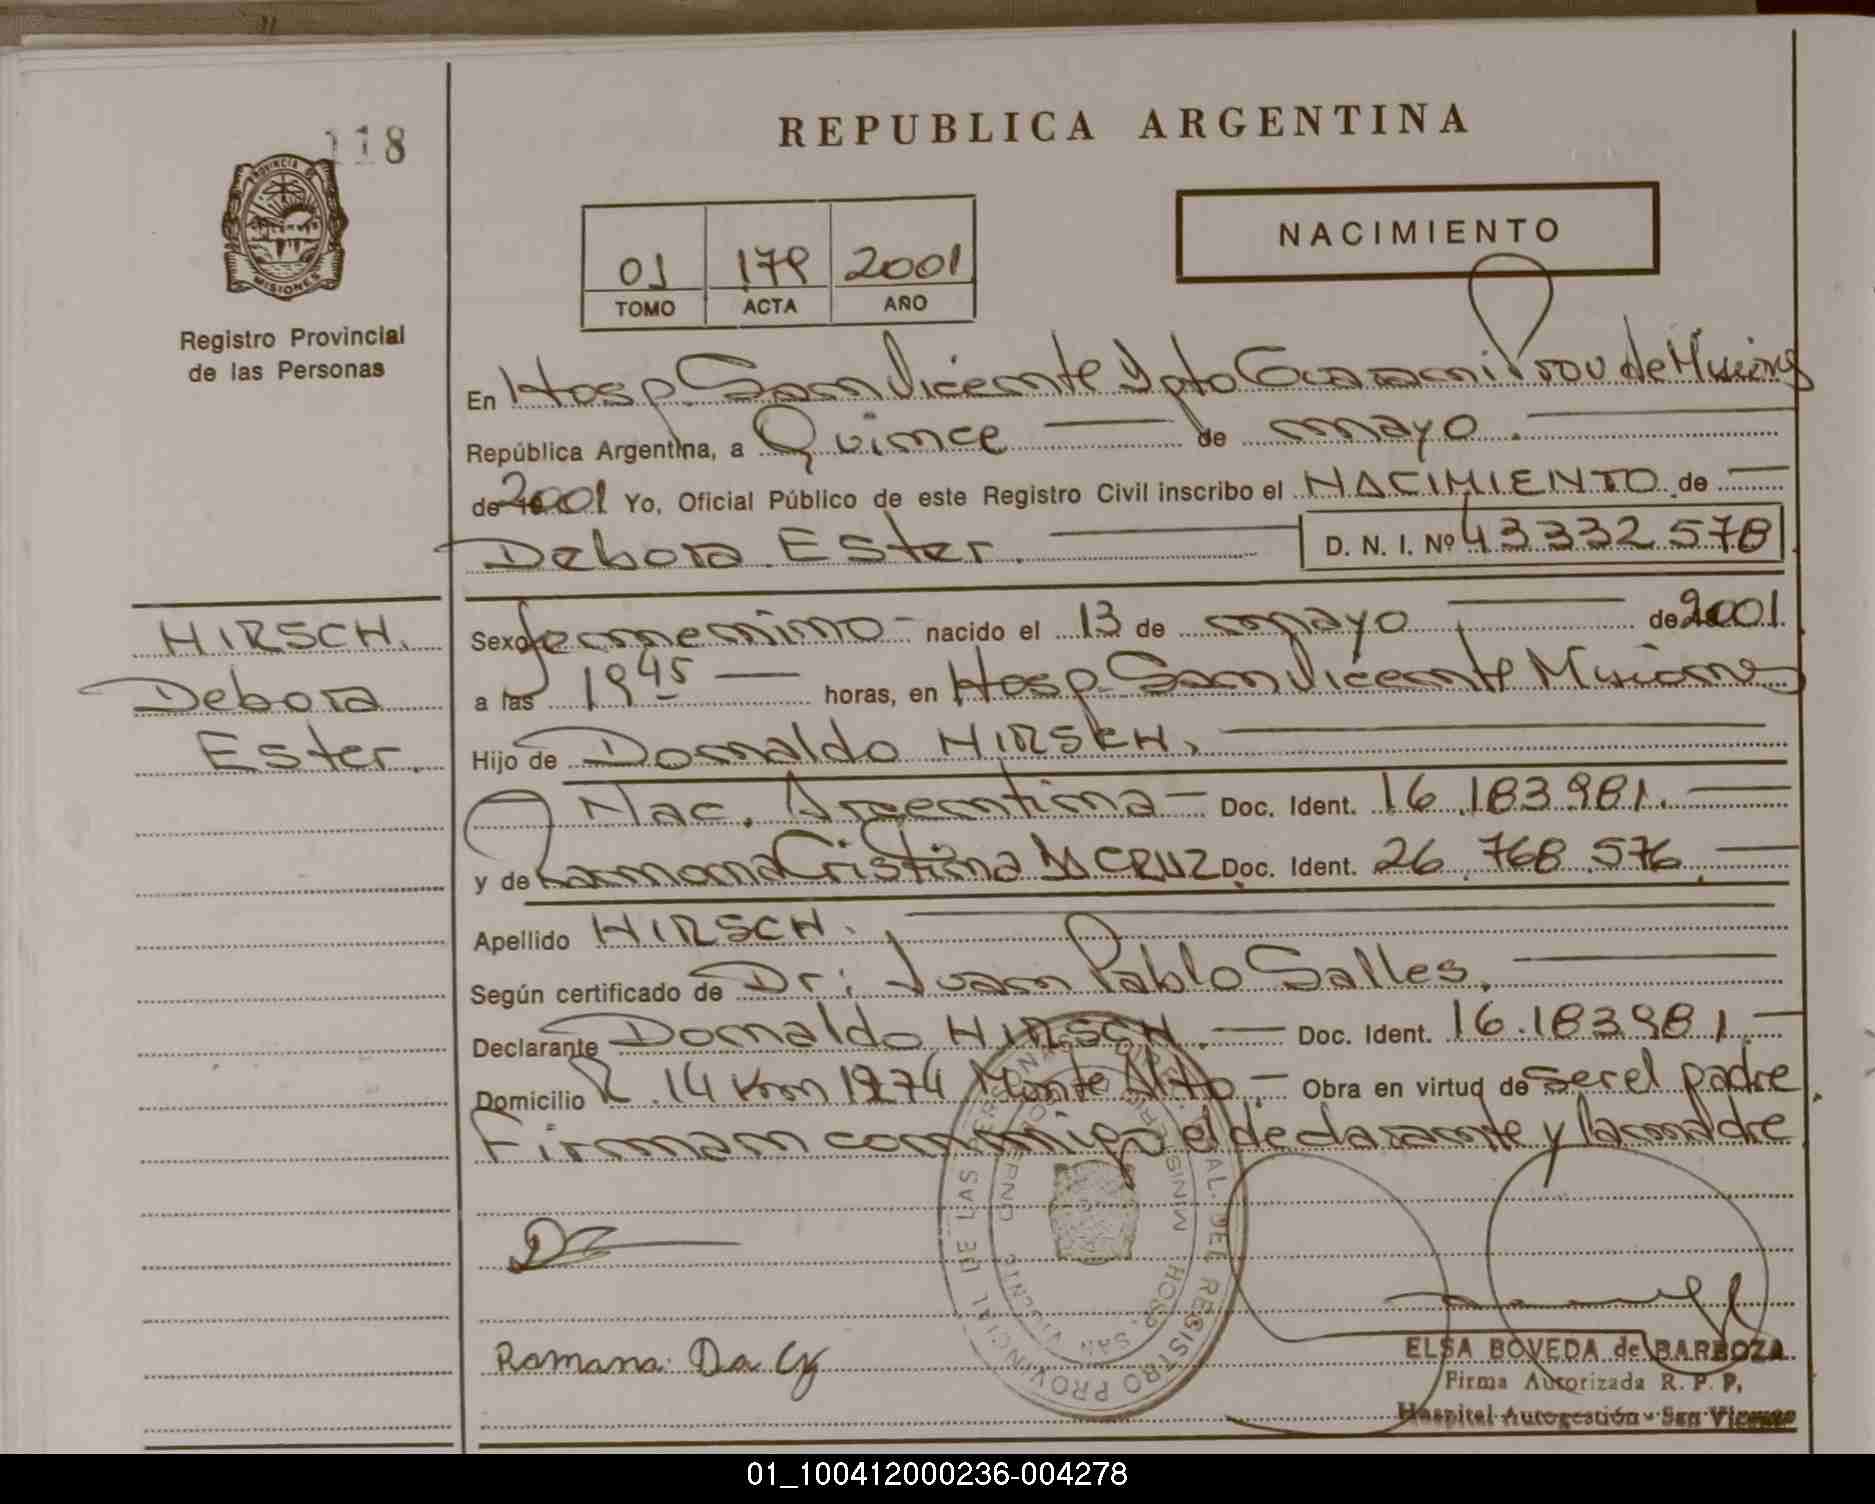 118
REPUBLICA ARGENTINA
PROVINCIA DE
MISIONES
Registro Provincial
de las Personas
01 179 2001
TOMO ACTA AÑO
NACIMIENTO
En Hosp San Vicente Dpto Guarani Prov de Misiones
República Argentina, a Quince de mayo
de 2001 Yo, Oficial Público de este Registro Civil inscribo el NACIMIENTO de
Debora Ester D. N. I. Nº 43332578
HIRSCH.
Debora
Ester.
Sexo femenino nacido el 13 de mayo de 2001
a las 19 45 horas, en Hosp San Vicente Misiones
Hijo de Donaldo HIRSCH,
Nac. Argentina Doc. Ident. 16.183.981.
y de Ramona Cristina Da CRUZ Doc. Ident. 26.768.576.
Apellido HIRSCH.
Según certificado de Dr: Juan Pablo Salles.
Declarante Donaldo HIRSCH. Doc. Ident. 16.183981.
Domicilio R. 14 Km 1274 Monte Alto Obra en virtud de ser el padre.
Firman conmigo el declarante y la madre
Ramona Da Cz
REGISTRO PROVINCIAL DE LAS
HOSP. SAN VICENTE
ELSA BOVEDA de BARBOZA
Firma Autorizada R. P. P.
Hospital Autogestión - San Vicente
01_100412000236-004278